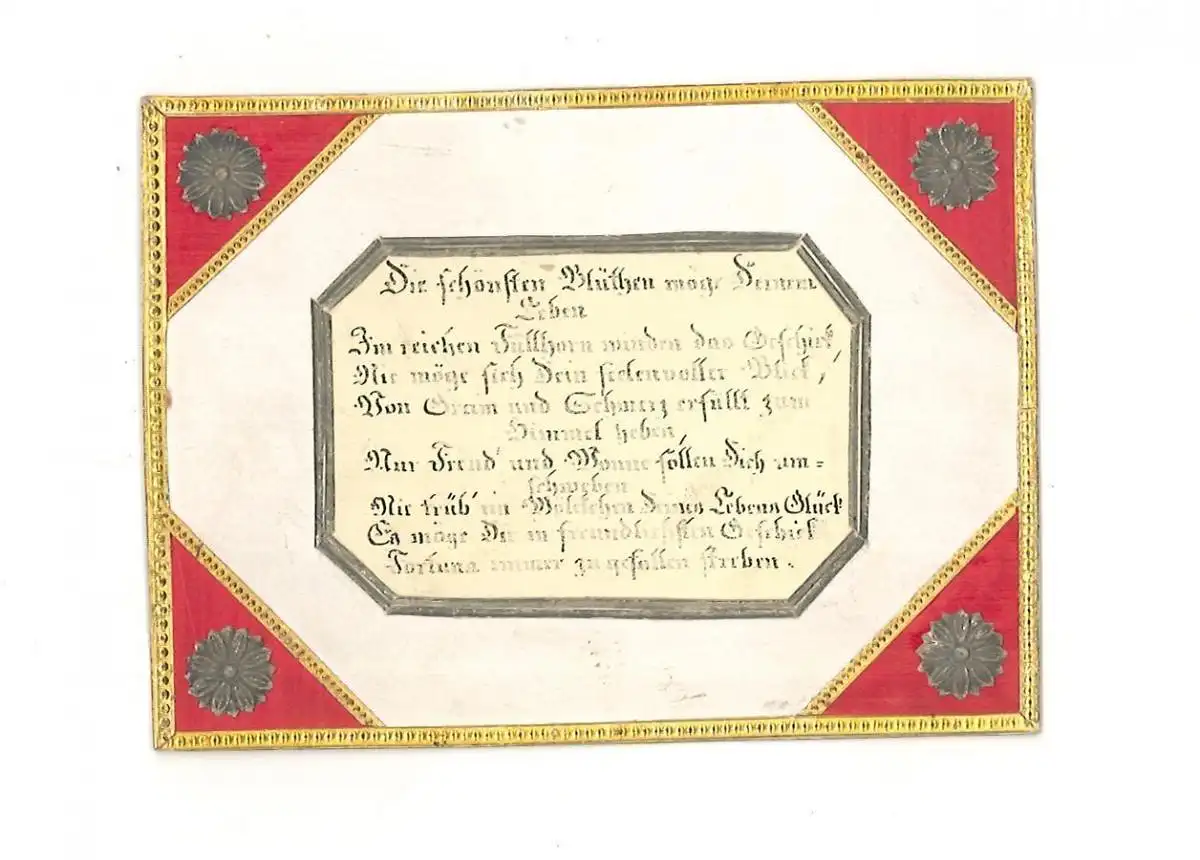 Die schönsten Blüthen möge Deinem
Leben
Im reichen Füllhorn winden das Geschick
Nie möge sich Dein seelenvoller Blick,
Von Gram und Schmerz erfüllt zum
Himmel heben,
Nur Freud' und Wonne sollen Dich um=
schweben
Nie trüb' ein Wölkchen Deines Lebens Glück
Es möge Dir in freundlichsten Geschick
Fortuna immer zu gefallen streben.